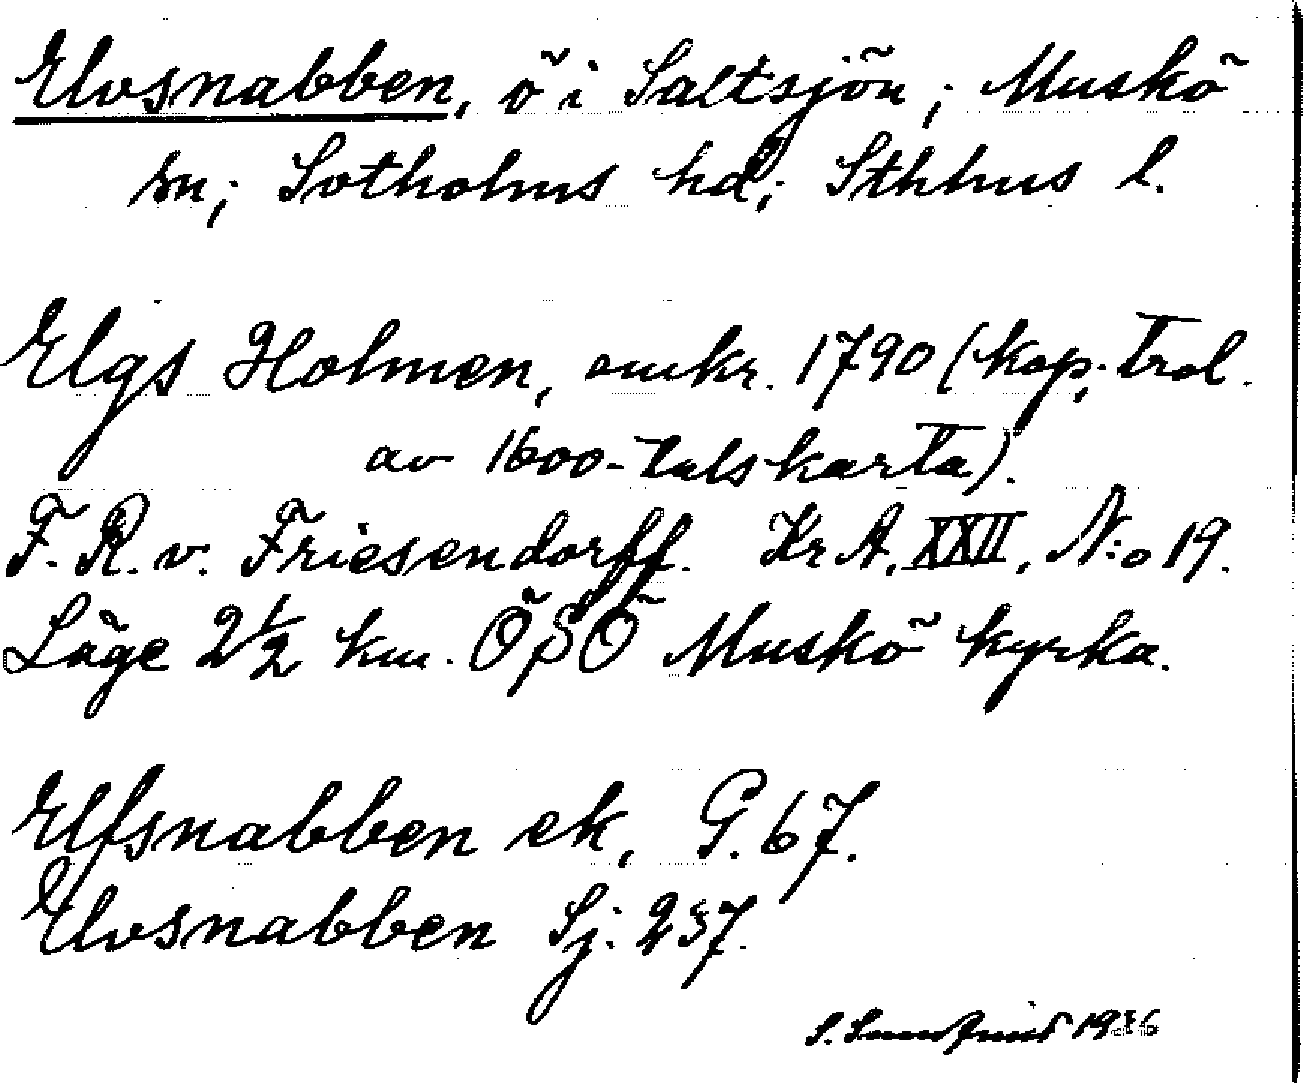 Elvsnabben, ö i Saltsjön; Muskö
sn; Sotholms hd; Sthlms l.
Elgs Holmen, omkr. 1790 (kop, trol.
av 1600-talskarta).
F. R. v. Friesendorff. Kr A, XXII, N:o 19.
Läge 2 1/2 km. ÖSÖ Muskö kyrka.
Elfsnabben ek, G. 67.
Elvsnabben Sj. 237.
S. 1936